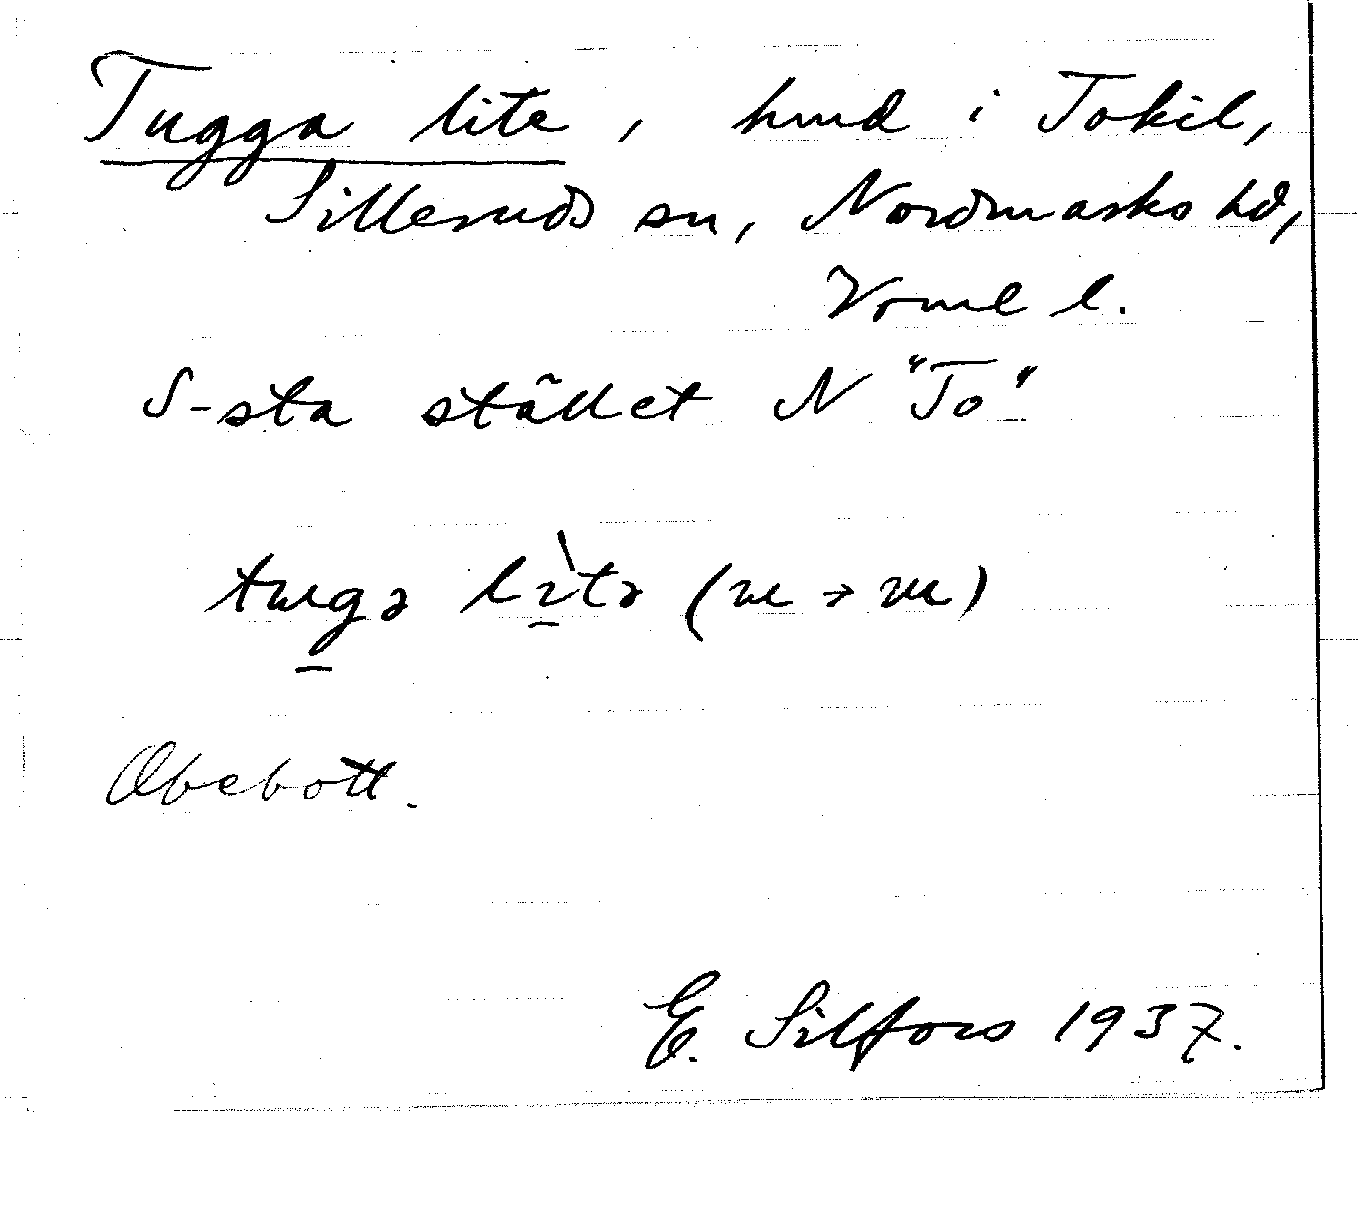 Tugga lite, hmd i Tokil,
Silleruds sn, Nordmarks hd,
Vrml l.
S-sta stället N "To"
tugə lìtə (u → u)
Obebott.
E. Silfors 1937.